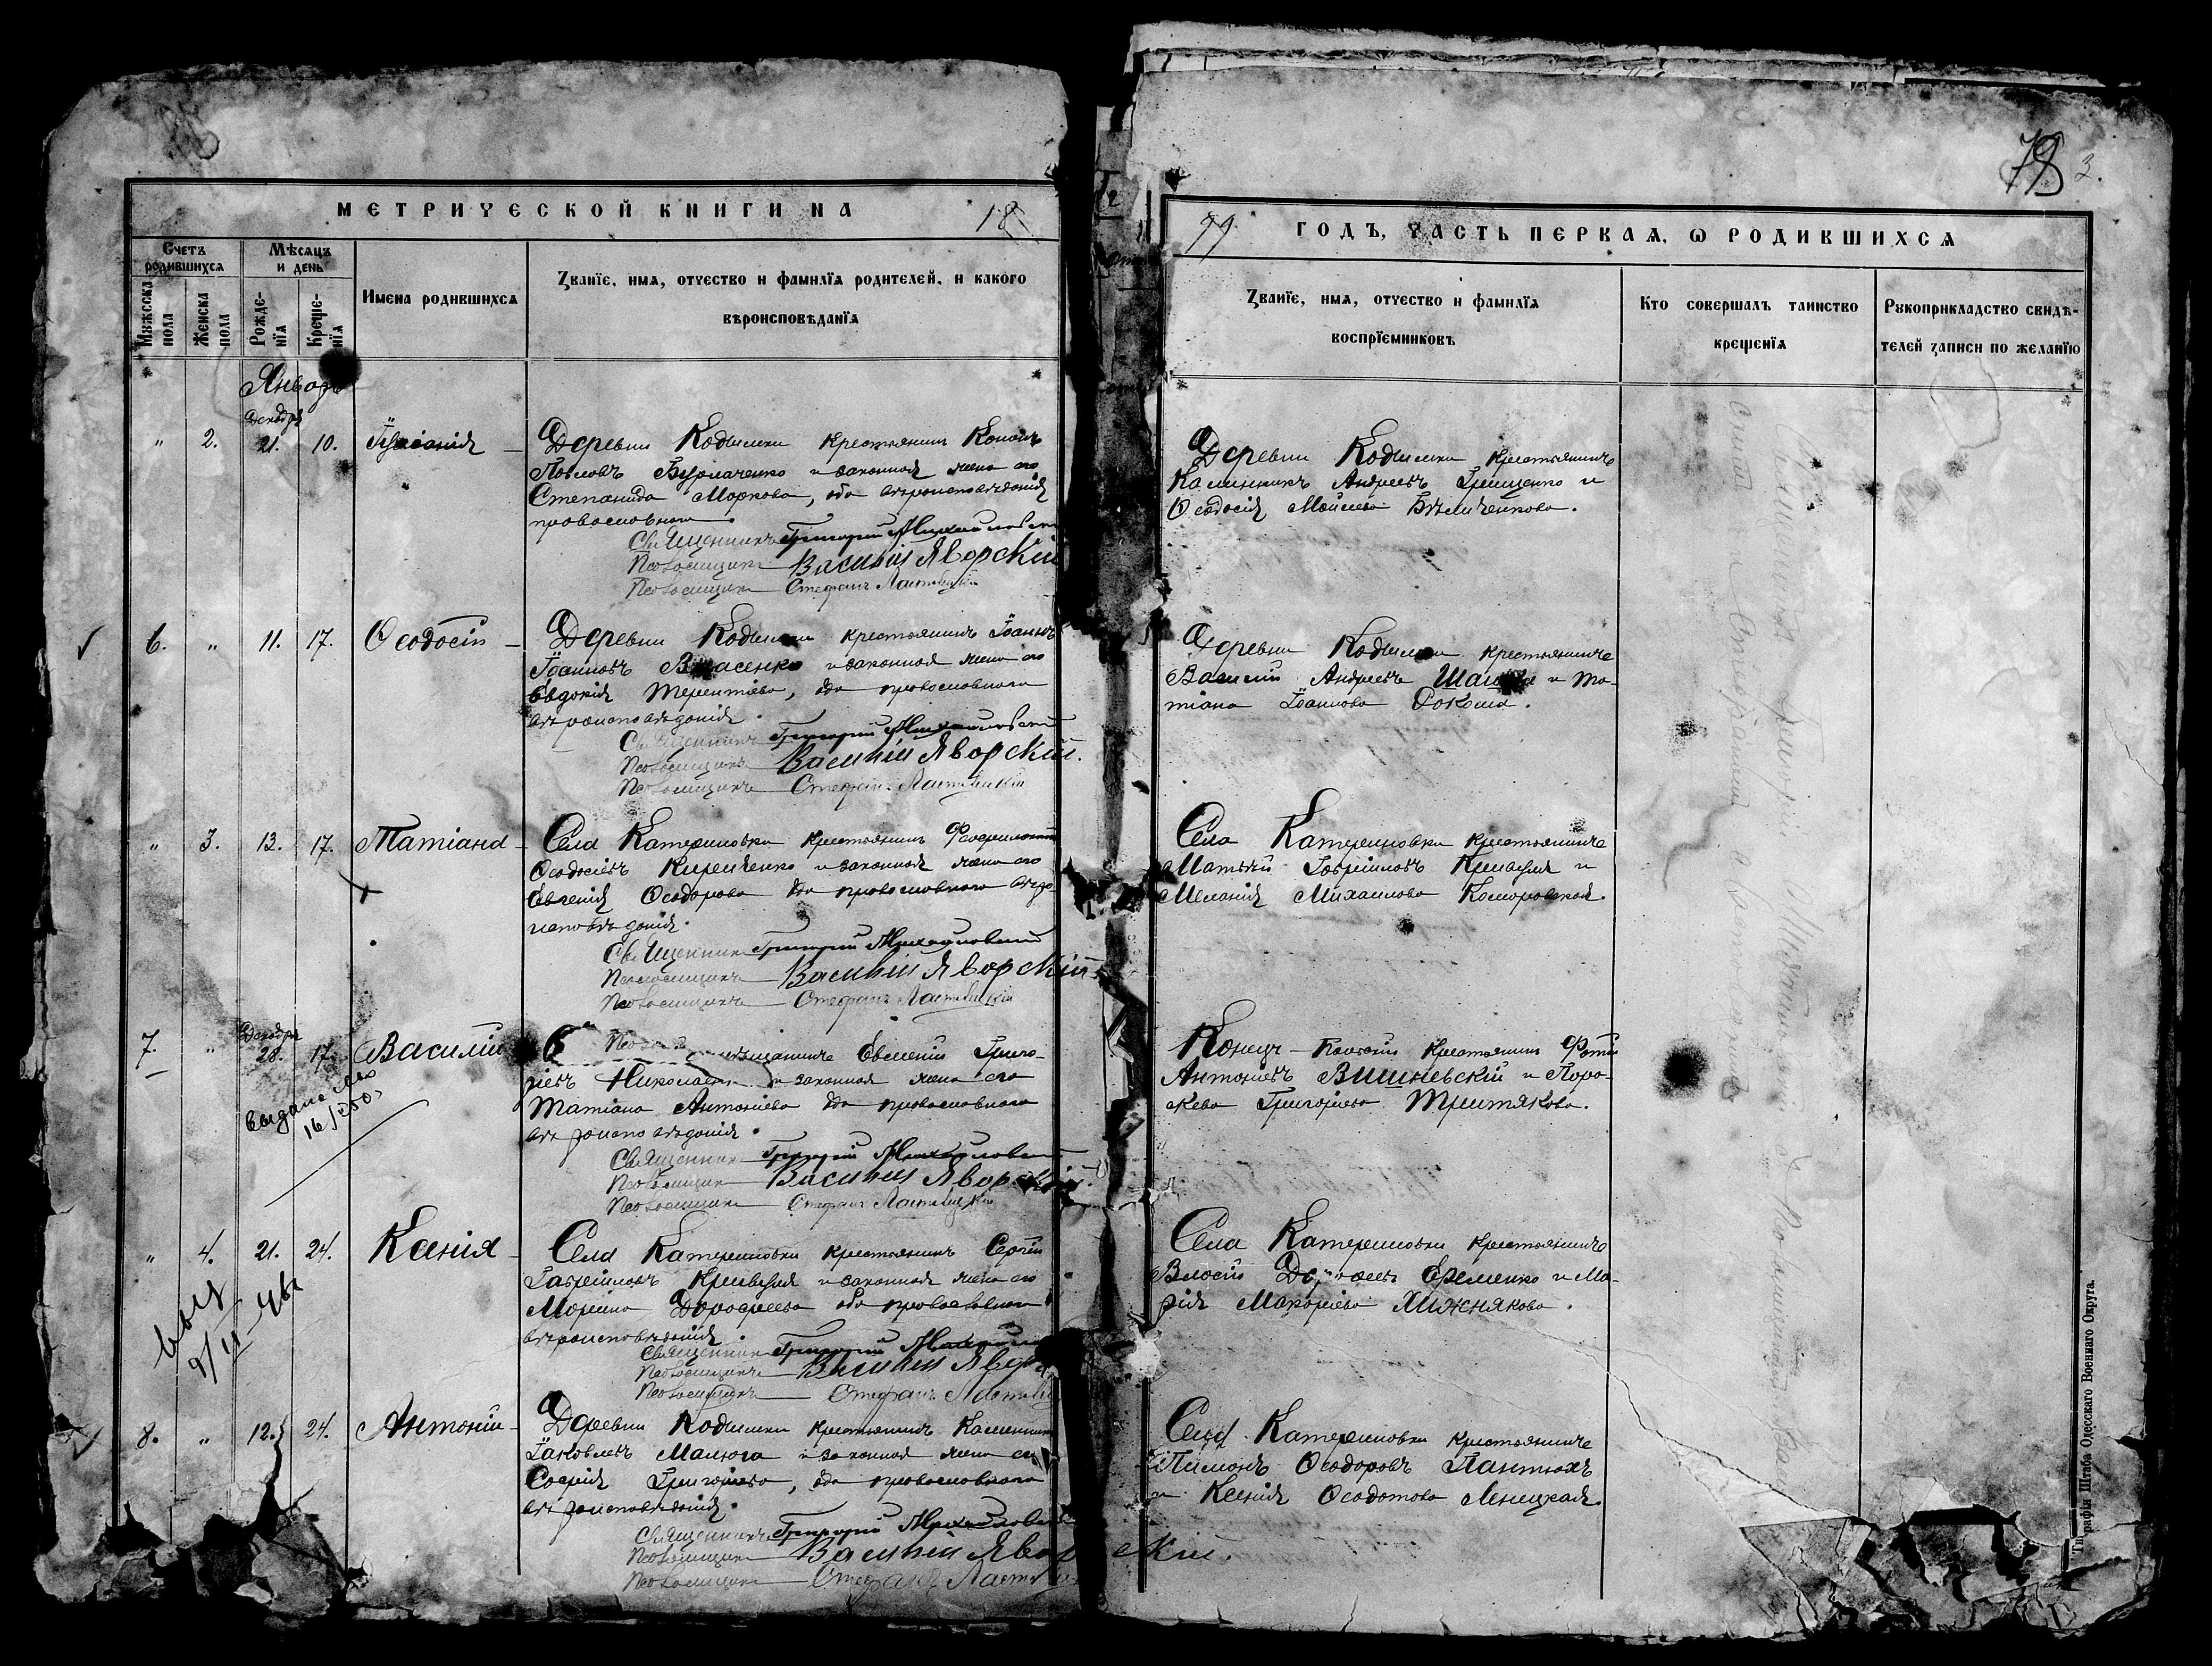 78 3.
МЕТРИЧЕСКОЙ КНИГИ НА 18
99 ГОДЪ, ЧАСТЬ ПЕРВАЯ, Ѡ РОДИВШИХСЯ
Счетъ родившихся
Мужеска пола
Женска пола
Мѣсяцъ и день
Рожде-нія
Креще-нія
Имена родившихся
Званіе, имя, отчество и фамилія родителей, и какого
вѣроисповѣданія
Званіе, имя, отчество и фамилія
воспріемниковъ
Кто совершалъ таинство
крещенія
Рукоприкладство свидѣ-
телей записи по желанію
Январь
Декабрь
" 2. 21. 10.
Деревни Кодымки крестьянинъ Кононъ
Павловъ Бурлаченко и законная жена его
Степанида Маркова, оба вѣроисповѣданія
православнаго.
Священникъ Григорій Михайловскій
Псаломщикъ Василій Яворскій
Псаломщикъ Стефанъ
Деревни Кодымки крестьянинъ
Каллиникъ Андреевъ Грищенко и
Ѳеодосія Моисеева Бѣличенкова.
6. " 11. 17. Ѳеодосій
Деревни Кодымки крестьянинъ Іоаннъ
Іоанновъ Власенко и законная жена его
Евдокія Терентіева, оба православнаго
вѣроисповѣданія.
Священникъ Григорій Михайловскій
Псаломщикъ Василій Яворскій.
Псаломщикъ Стефанъ
Деревни Кодымки крестьянинъ
Василій Андреевъ и Та-
тіана Іоаннова
" 3. 13. 17. Татіана
Села Катериновки крестьянинъ
Ѳеодосіевъ Кириченко и законная жена его
Евгенія Ѳеодорова оба православнаго вѣро-
исповѣданія.
Священникъ Григорій Михайловскій
Псаломщикъ Василій Яворскій
Псаломщикъ Стефанъ
Села Катериновки крестьянинъ
Матѳей Гавріиловъ Кривуля и
Меланія Михайлова Коморовская.
Декабрь
7. " 28. 17. Василій
мѣщанинъ Евгеній Григо-
ріевъ и законная жена его
Татіана Антоніева оба православнаго
вѣроисповѣданія.
Священникъ Григорій Михайловскій
Псаломщикъ Василій Яворскій.
Псаломщикъ Стефанъ
Крестьянинъ Фотій
Антоніевъ Вишневскій и Пара-
скева Григоріева Третякова.
" 4. 21. 24. Ксенія
Села Катериновки крестьянинъ Сергій
Гавріиловъ Кривуля и законная жена его
Марина Дорофеева оба православнаго
вѣроисповѣданія.
Священникъ Григорій
Псаломщикъ Василій
Псаломщикъ Стефанъ
Села Катериновки крестьянинъ
Власій Еременко и Ма-
рія Макаріева Хижнякова.
8. " 12. 24. Антоній
Деревни Кодымки крестьянинъ
Іаковлевъ Малюга и законная жена его
Софія Григоріева, оба православнаго
вѣроисповѣданія.
Священникъ Григорій Михайловскій
Псаломщикъ Василій Яворскій.
Псаломщикъ Стефанъ
Села Катериновки крестьянинъ
Ѳеодоровъ Пантюхъ
и Ксенія Ѳеодотова Леницкая.
графія Штаба Одесскаго Военнаго Округа.